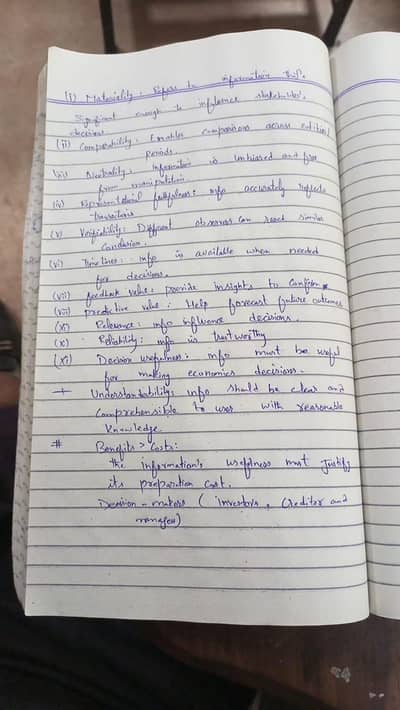 (i) Materiality: Refers to information that's
Significant enough to influence stakeholders'
decisions
(ii) Comparability: Enables comparisons across entities/
Periods.
(iii) Neutrality: Information is unbiased and free
from manipulation
(iv) Representational faithfulness: info accurately reflects
transitions
(v) Verifiability: Different observers can reach similar
Conclusion.
(vi) Timelines: info is available when needed
for decisions.
(vii) feedback value: provide insights to confirm
(viii) predictive value: Help forecast future outcomes
(ix) Relevance: info influence decisions.
(x) Reliability: info is trustworthy
(xi) Decision usefulness: info must be useful
for making economics decisions.
+ Understandability: info should be clear and
Comprehensible to user with reasonable
Knowledge.
# Benefits > Costs:
the information's usefulness must justify
its preparation cost.
Decision-makers (investors, Creditor and
manager)